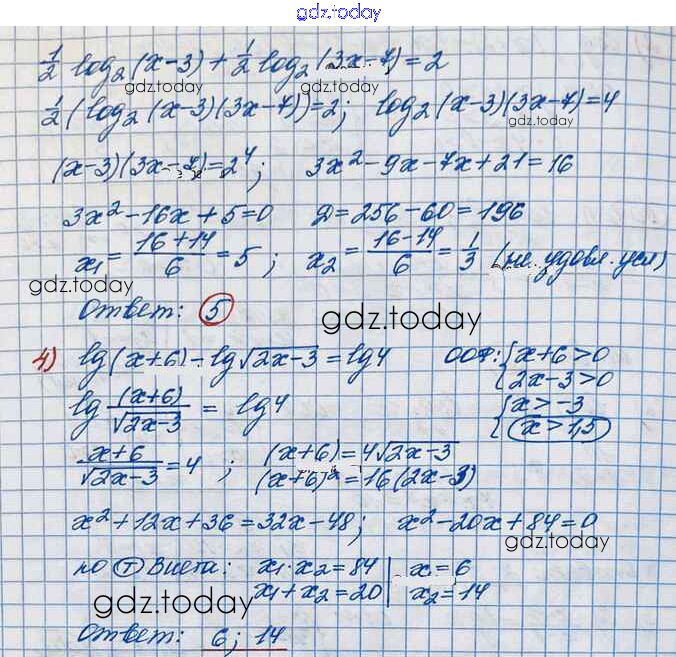 gdz.today
1/2 log₂(x-3) + 1/2 log₂(3x-7) = 2
gdz.today
1/2(log₂(x-3)(3x-7)) = 2; log₂(x-3)(3x-7) = 4
gdz.today
(x-3)(3x-7) = 2⁴; 3x² - 9x - 7x + 21 = 16
3x² - 16x + 5 = 0 D = 256 - 60 = 196
x₁ = (16+14)/6 = 5; x₂ = (16-14)/6 = 1/3 (не удовл. усл)
gdz.today
Ответ: 5
gdz.today
4) lg(x+6) - lg√(2x-3) = lg4 ООФ: { x+6>0
2x-3>0
lg (x+6)/√(2x-3) = lg4 { x>-3
x>1,5
(x+6)/√(2x-3) = 4; (x+6) = 4√(2x-3)
(x+6)² = 16(2x-3)
x² + 12x + 36 = 32x - 48; x² - 20x + 84 = 0
gdz.today
по Т Виета: x₁·x₂ = 84 | x₁ = 6
x₁ + x₂ = 20 | x₂ = 14
gdz.today
Ответ: 6; 14